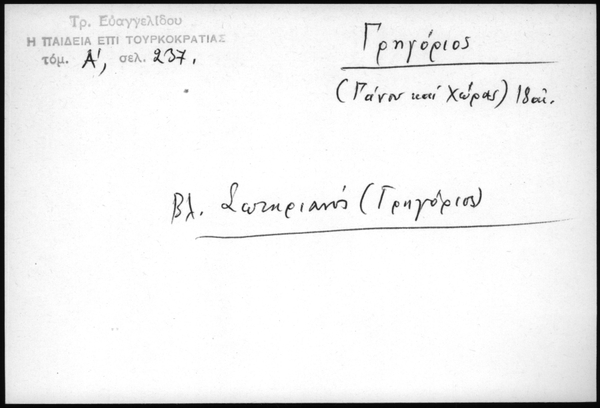 Τρ. Εὐαγγελίδου
Η ΠΑΙΔΕΙΑ ΕΠΙ ΤΟΥΡΚΟΚΡΑΤΙΑΣ
τόμ. Α', σελ. 237.
Γρηγόριος
(Γάνου καί Χώρας) 18 αἰ.
Βλ. Σωτηριανός (Γρηγόριος)